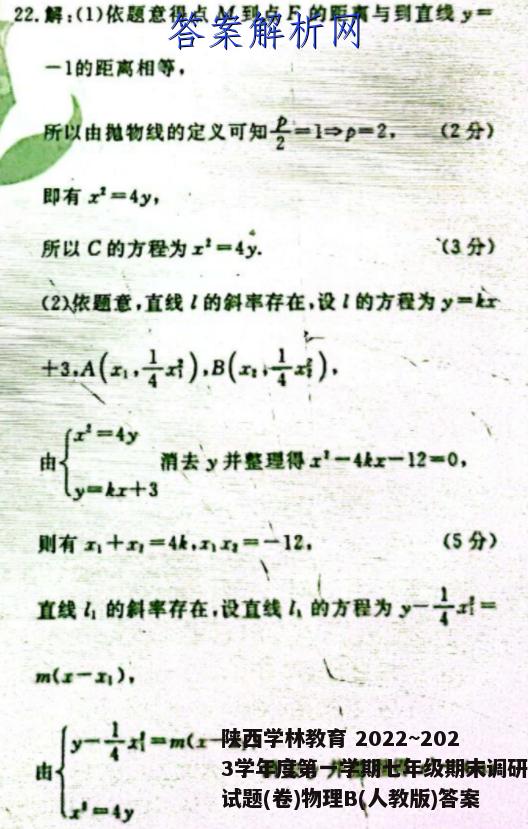 22.解:(1)依题意得点M到点F的距离与到直线y=
答案解析网
-1的距离相等,
所以由抛物线的定义可知p/2=1⇒p=2, (2分)
即有x²=4y,
所以C的方程为x²=4y. (3分)
(2)依题意,直线l的斜率存在,设l的方程为y=kx
+3,A(x₁,1/4x₁²),B(x₂,1/4x₂²),
由{x²=4y
y=kx+3 消去y并整理得x²-4kx-12=0,
则有x₁+x₂=4k,x₁x₂=-12, (5分)
直线l₁的斜率存在,设直线l₁的方程为y-1/4x₁²=
m(x-x₁),
由{y-1/4x₁²=m(x
x²=4y
陕西学林教育 2022~202
3学年度第一学期七年级期末调研
试题(卷)物理B(人教版)答案